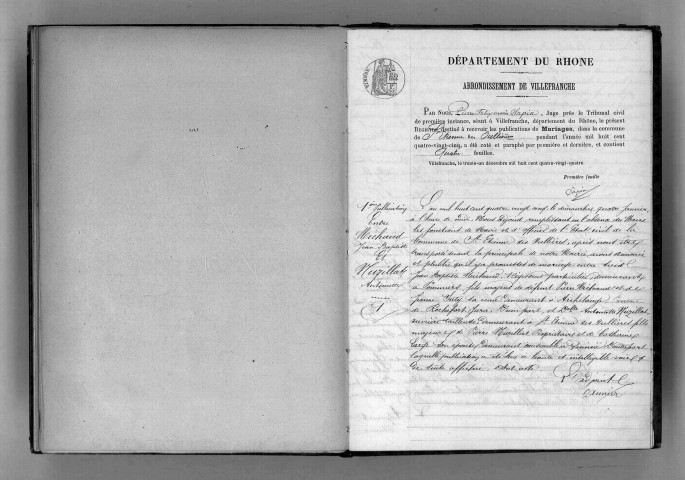 DÉPARTEMENT DU RHONE
ARRONDISSEMENT DE VILLEFRANCHE
PAR NOUS, Pierre Sapin, Juge près le Tribunal civil
de première instance, séant à Villefranche, département du Rhône, le présent
Registre destiné à recevoir les publications de Mariages, dans la commune
de St Etienne des Oullières pendant l'année mil huit cent
quatre-vingt-cinq, a été coté et paraphé par première et dernière, et contient
Quatre feuilles.
Villefranche, le trente-un décembre mil huit cent quatre-vingt-quatre
Première feuille
Sapin
1ère Publication
Entre
Michaud
Jean Baptiste
Et
Muzillat
Antoinette
1
L'an mil huit cent quatre vingt cinq le dimanche quatre Janvier
à l'heure de midi. Nous adjoint remplissant en l'absence du Maire
les fonctions de Maire et d'officier de l'Etat civil de la
Commune de St Etienne des Oullières, après nous être
transporté devant la principale de notre Mairie, avons annoncé
et publié qu'il y a promesses de mariage entre
Jean Baptiste Michaud, demeurant
à Pommiers, fils majeur de défunt Pierre Michaud et de
Jeanne demeurant à
de Rochefort Jura. D'une part, et Dlle Antoinette Muzillat
demeurant à St Etienne des Oullières fille
majeure de Pierre Muzillat Propriétaire et de Catherine
son épouse demeurant ensemble à D'autre part
laquelle publication a été lue à haute et intelligible voix et
de suite affichée. Dont acte
L'adjoint